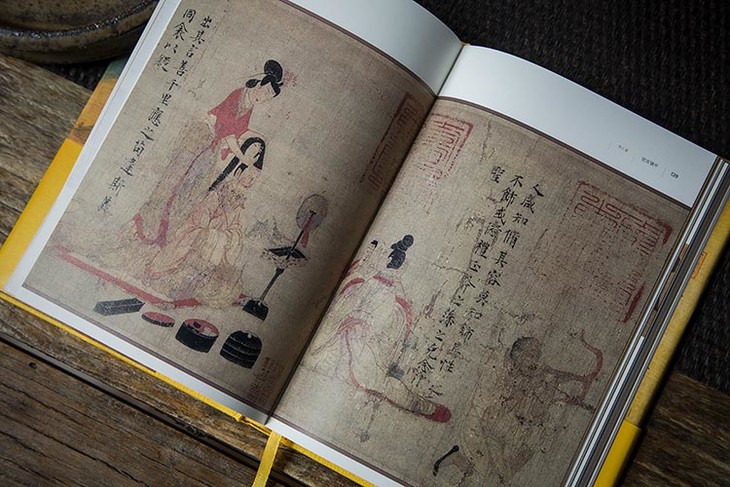 出其言善千里應之苟違斯義
同衾以疑
129
人咸知脩其容莫知飾其性之
不飾或愆禮正斧之藻之克念作
聖